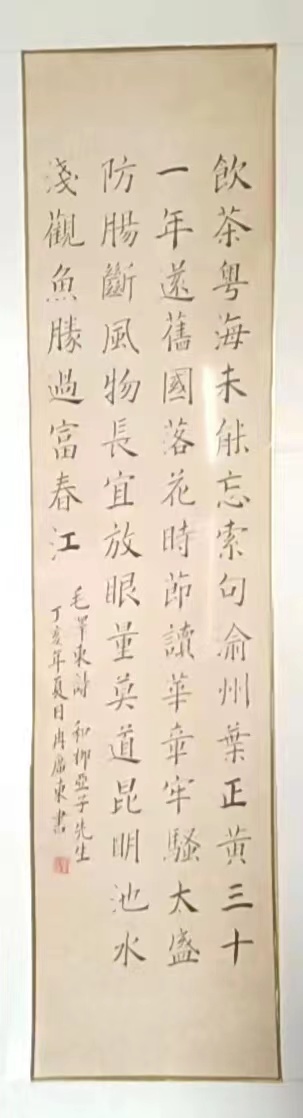 飲茶粤海未能忘索句渝州葉正黄三十
一年還舊國落花時節讀華章牢騷太盛
防腸斷風物長宜放眼量莫道昆明池水
淺觀魚勝過富春江
毛澤東詩 和柳亞子先生
丁亥年夏日冉東書